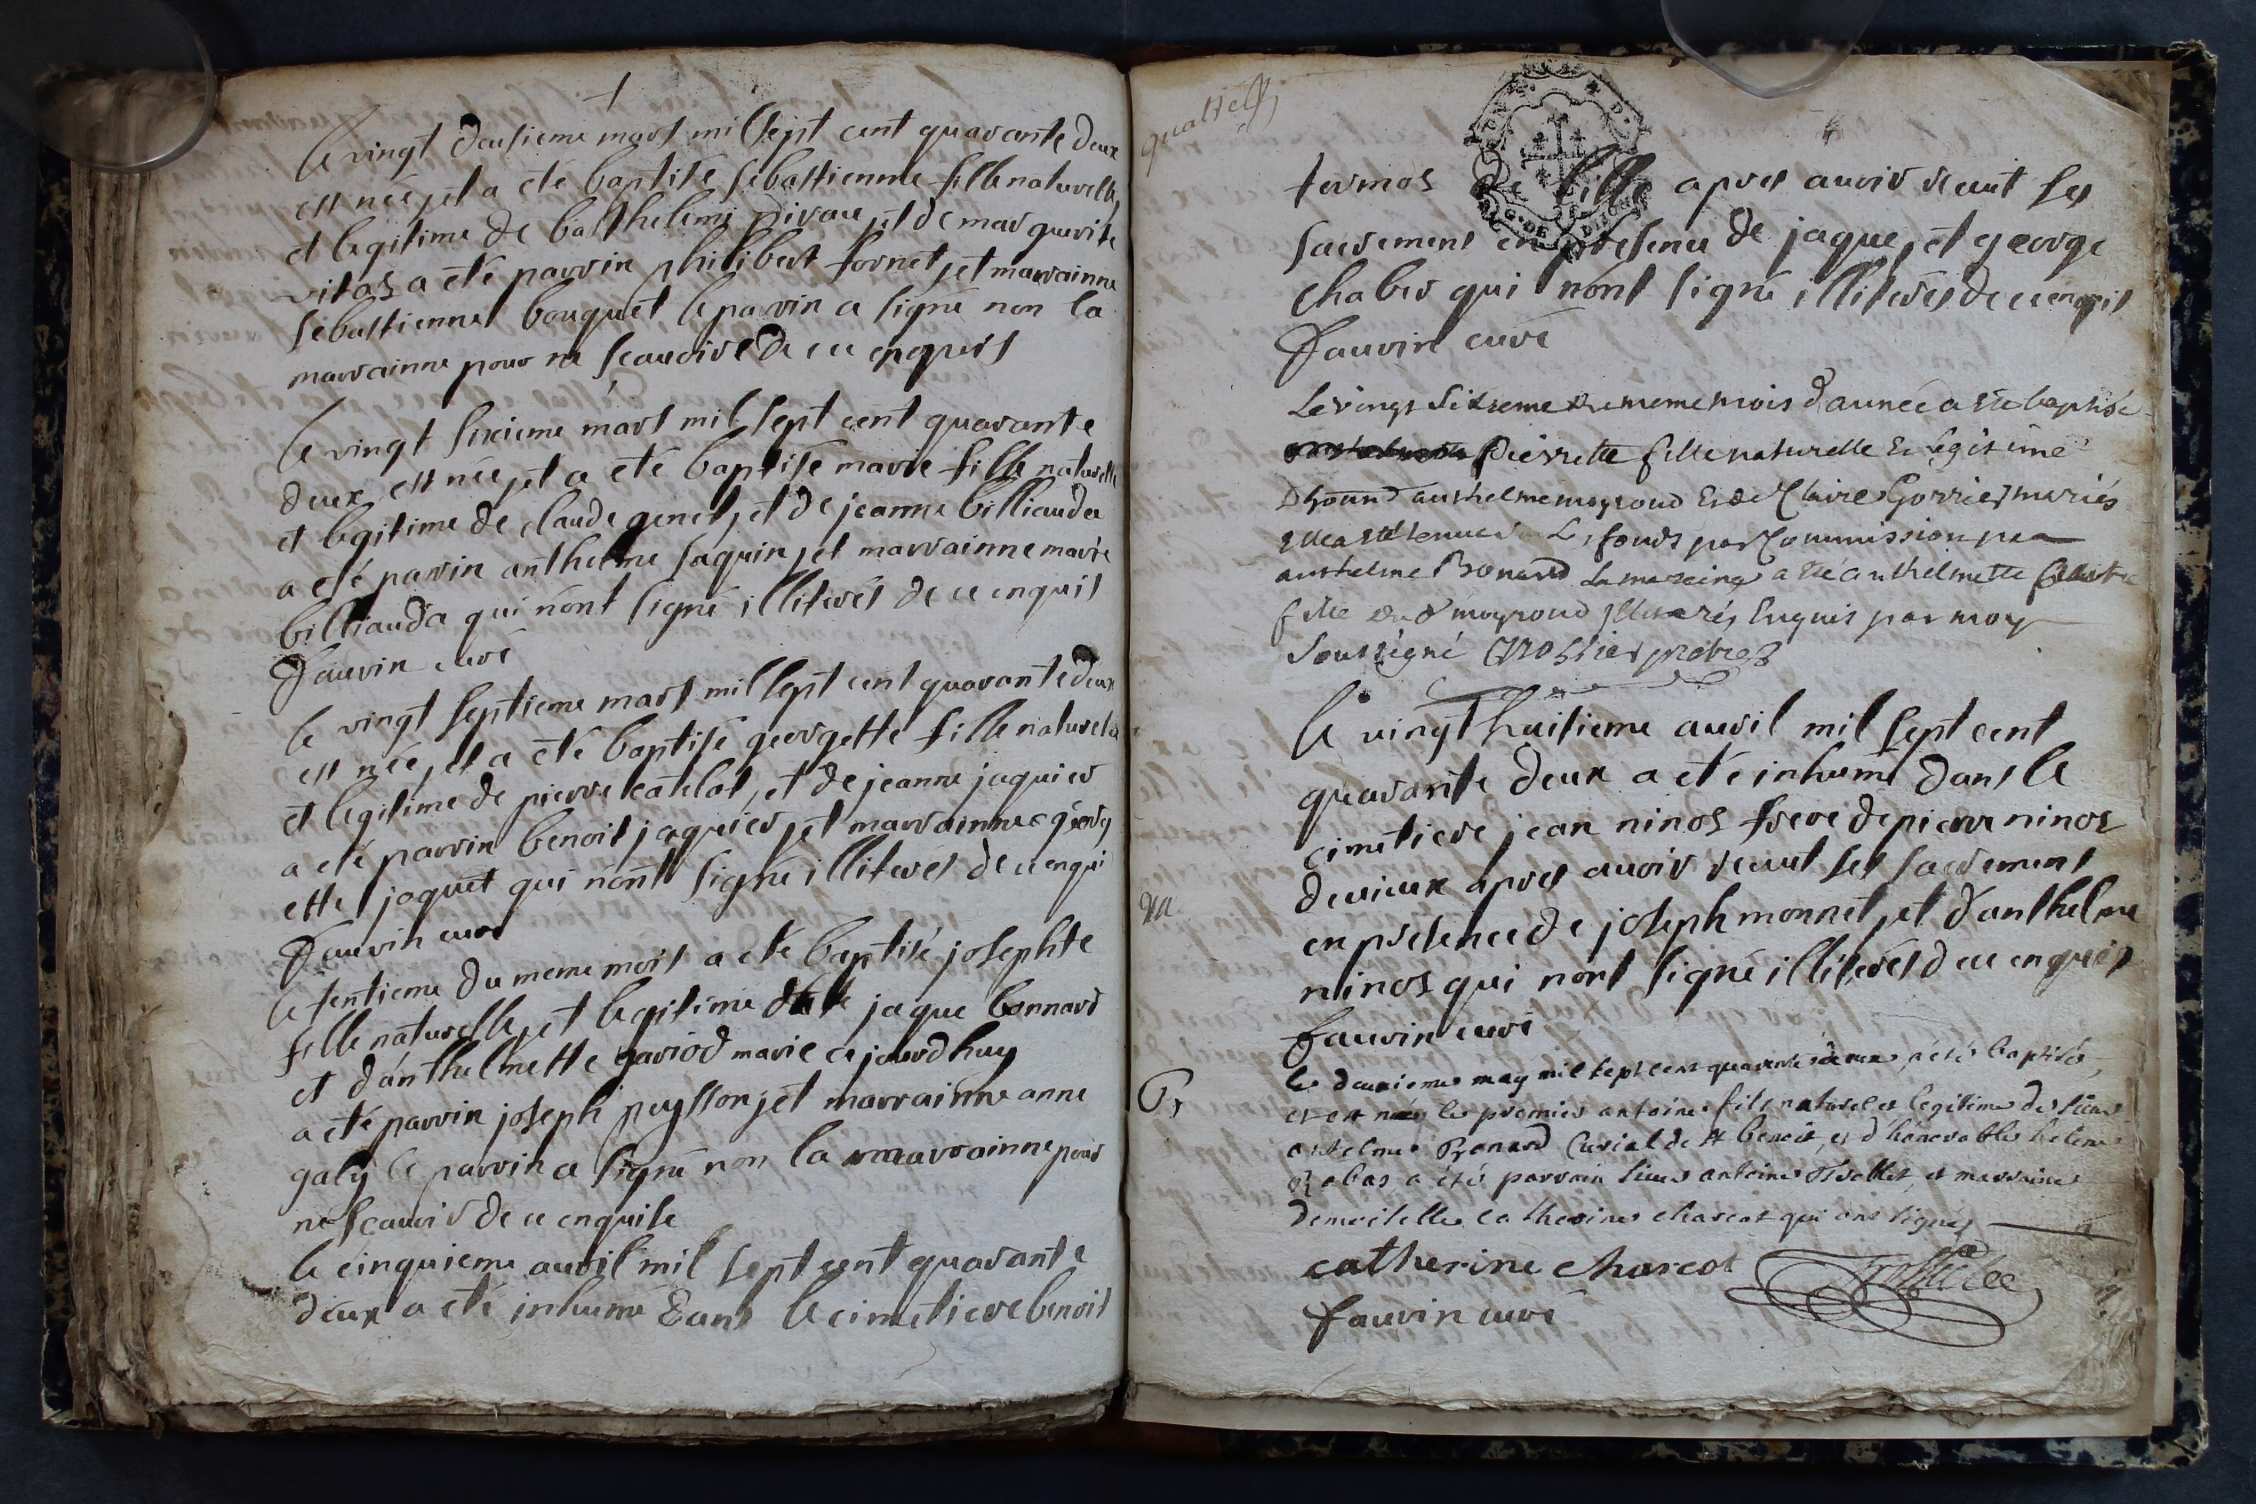 le vingt deusieme mars mil sept cent quarante deux
est née, et a eté baptisé sebastienne fille naturelle,
et legitime de barthelemi pivou, et de marguerite
vitas a eté parrin philibert fornet, et marrainne
sebastienne bouquet le parrin a signé non la
marrainne pour ne scauoire de ce enquis
le vingt sixieme mars mil sept cent quarante
deux, est née, et a eté baptisé marie fille naturelle
et legitime de claude genet, et de jeanne billiauda
a eté parrin anthelme saquin, et marrainne marie
billiauda qui nónt signé illiterés de ce enquis
fauvin curé
le vingt septieme mars mil sept cent quarante deux
est née, et a eté baptisé georgette fille naturele
et legitime de pierre catelat, et de jeanne jaquier
a eté parrin benoit jaquier, et marrainne georg
ette jaquet qui nónt signé illiterés de ce enqui
fauvin curé
le tentieme du meme mois a eté baptisé josephte
fille naturelle, et legitime de jaque bonnard
et dánthelmette gariod marié ce jourdhuy
a eté parrin joseph peysson, et marrainne anne
galy le parrin a signé non la marrainne pour
ne scauoir de ce enquise
le cinquieme auril mil sept cent quarante
deux a eté inhumé dans le cimetiere benoit
quatre
termos de lille apres auoir recut ses
sacrement en presence de jaque, et george
chaber qui nónt signé illiterés de ce enquis
fauvin curé
Le vingt sixieme du meme mois & année a été baptisée
pierrette fille naturelle & legitime
D'honnd anthelme moyroud & de Claire Gorrier mariés
elle a été tenue Ls fonds par Commission par
anthelme Bonard La mareine a été anthelmette
fille du d moyroud illiterés Enquis par moy
soussigné prêtre
le vingt huitieme auril mil sept cent
quarante deux a eté inhumé dans le
cimetiere jean ninos frere de pierre ninos
de vieux apres auoir recut ses sacrement
en presence de joseph monnet, et dánthelme
ninos qui nont signé illiterés de ce enquis
fauvin curé
le deuxieme may mil sept cent quarante deux a été baptisé,
et est née le premier antoine fils naturel et legitime de sieur
antelme Bonard Curial de st benoit, et d'honorable helene
Rabas a été parrain sieur antoine, et marraine
demoiselle catherine charcot qui ont signé,
catherine charcot
fauvin curé